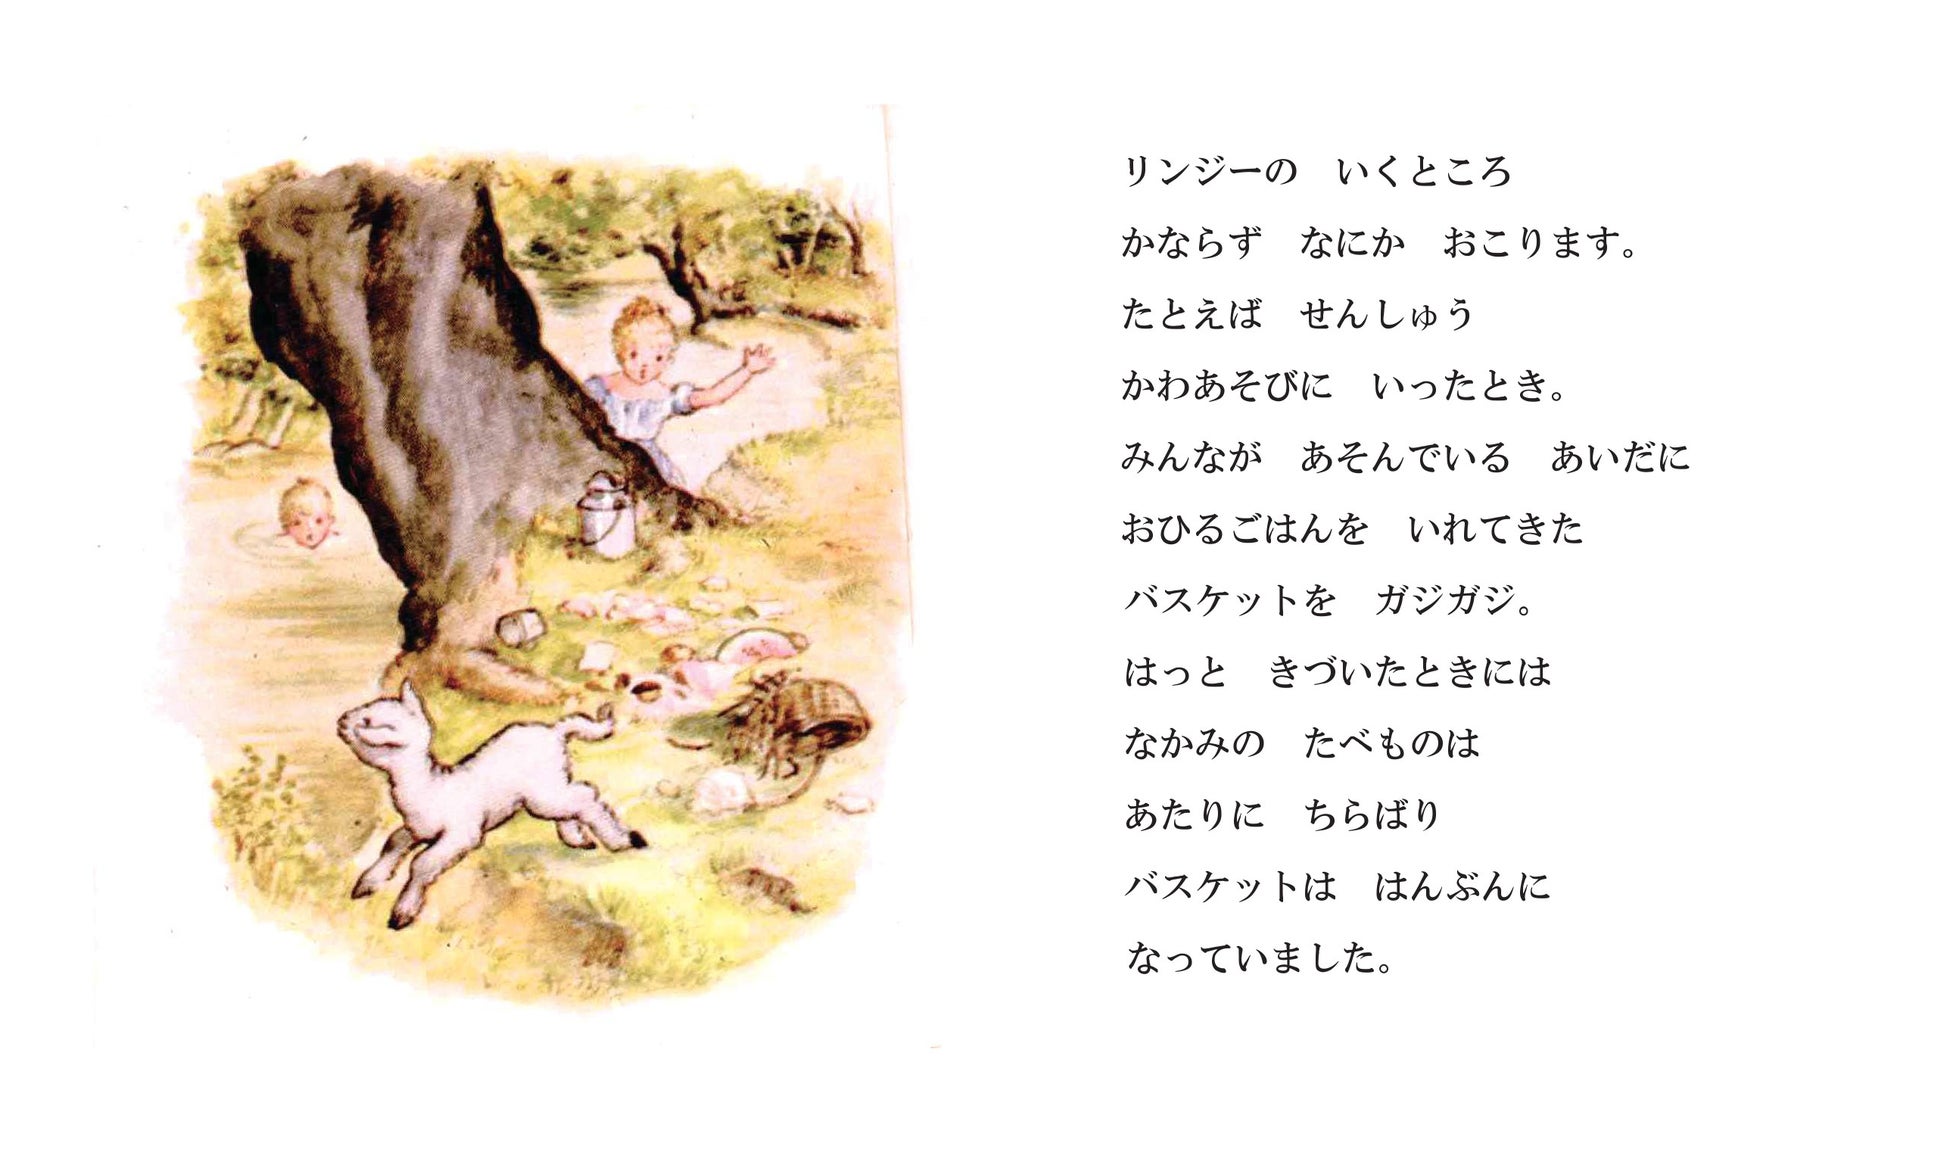 リンジーの　いくところ
かならず　なにか　おこります。
たとえば　せんしゅう
かわあそびに　いったとき。
みんなが　あそんでいる　あいだに
おひるごはんを　いれてきた
バスケットを　ガジガジ。
はっと　きづいたときには
なかみの　たべものは
あたりに　ちらばり
バスケットは　はんぶんに
なっていました。